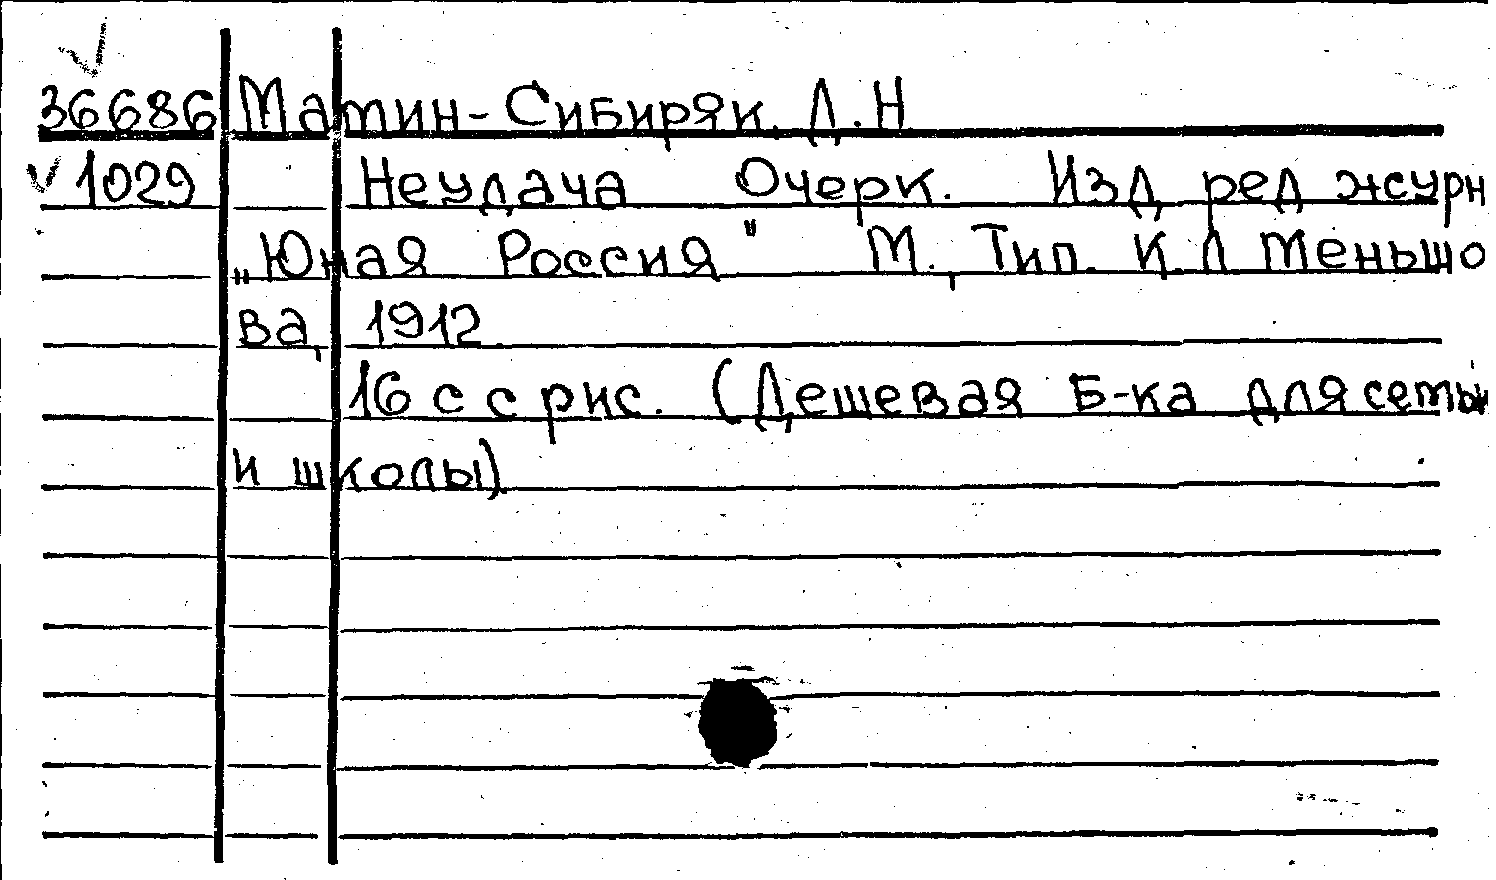 36686 Мамин-Сибиряк, Д.Н.
1029 Неудача Очерк. Изд ред журн
„Юная Россия" М., Тип. К.Л Меньшо
ва, 1912
16 с с рис. (Дешевая Б-ка для семьи
и школы)